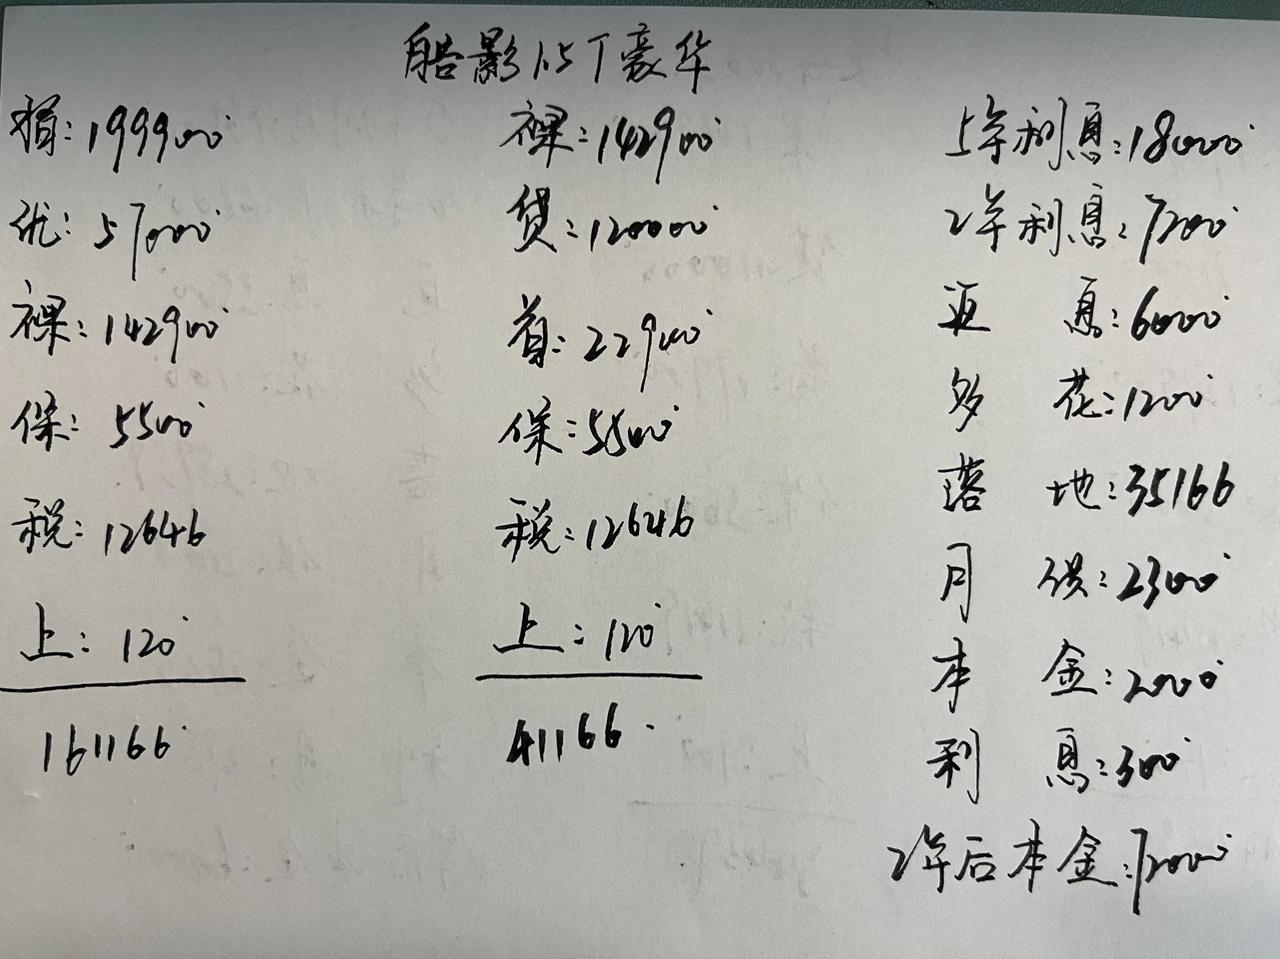 皓影1.5T豪华
指:199900
优:57000
裸:142900
保:5500
税:12646
上:120
161166
裸:142900
贷:120000
首:22900
保:5500
税:12646
上:120
41166
5年利息:18000
2年利息:7200
返 息:6000
多 花:1200
落 地:35166
月 供:2300
本 金:2000
利 息:300
2年后本金:72000